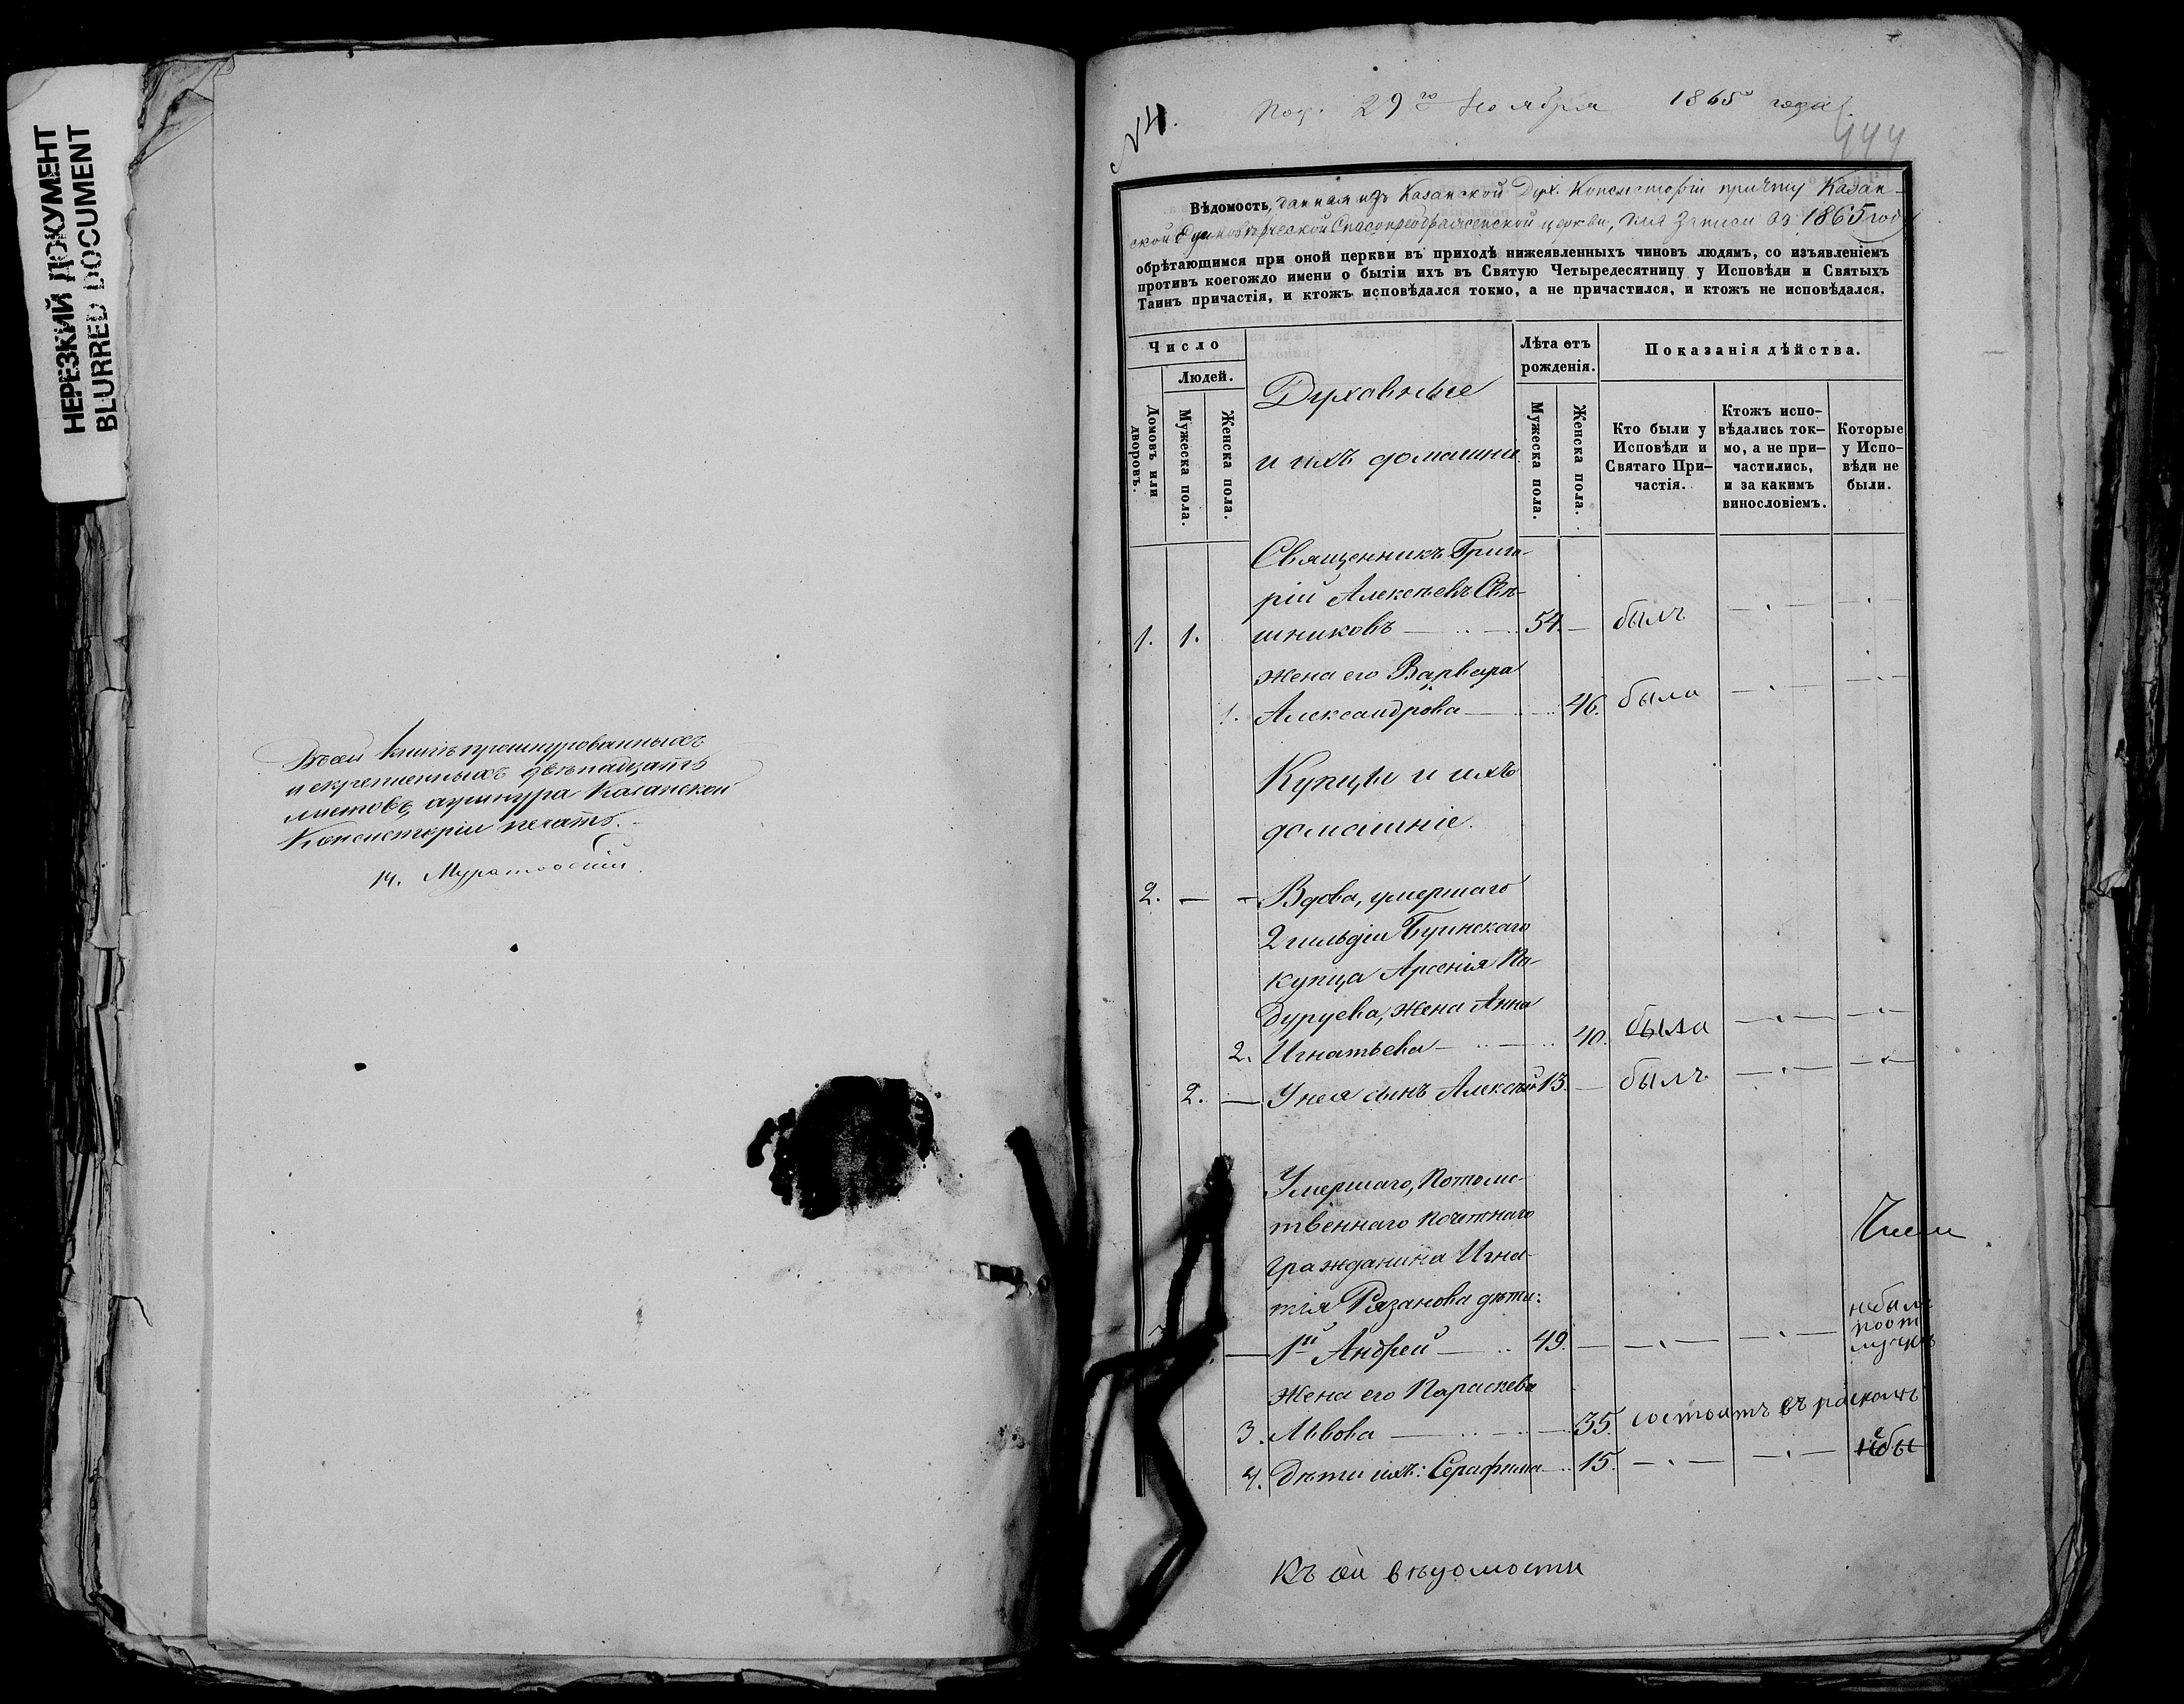 НЕРЕЗКИЙ ДОКУМЕНТ
BLURRED DOCUMENT
Въ сей книгѣ прошнурованныхъ
и скрепленныхъ двѣнадцать
листовъ, а у шнура Казанской
Консисторіи печать.
№ 4.
Под. 29го Ноября 1865 года
444
Вѣдомость, данная изъ Казанской Дух. Консисторіи причту Казан-
ской Единовѣрческой Спасопреображенской церкви, для записи въ 1865 году
обрѣтающимся при оной церкви въ приходѣ нижеявленныхъ чиновъ людямъ, со изъявленіемъ
противъ коегождо имени о бытіи ихъ въ Святую Четыредесятницу у Исповѣди и Святыхъ
Таинъ причастія, и ктожъ исповѣдался токмо, а не причастился, и ктожъ не исповѣдался.
Число
Людей.
Домовъ или дворовъ.
Мужеска пола.
Женска пола.
Духовные
и ихъ домашніе
Лѣта отъ рожденія.
Мужеска пола.
Женска пола.
Показанія дѣйства.
Кто были у Исповѣди и Святаго При-частія.
Ктожъ испо-вѣдались ток-мо, а не при-частились, и за какимъ винословіемъ.
Которые у Испо-вѣди не были.
Священникъ Григо-
рій Алексѣевъ Свѣ-
1. 1. шниковъ 54. — былъ
жена его Варвара
1. Александрова 46. была
Купцы и ихъ
домашніе.
2. — — Вдова, умершаго
2 гильдіи Буинскаго
купца Арсенія Па-
дуруева, жена Анна
2. Игнатьева 40. была
2. — У нея сынъ Алексѣй 13. — былъ
Умершаго, Потомс-
твеннаго почетнаго
гражданина Игна-
тія Рязанова дѣти:
— 1й Андрей 49. — небылъ
по от
лучкѣ
Жена его Параскева
3. Львова 35. состоитъ въ расколѣ
4. Дѣти ихъ: Серафима 15. небы
Къ сей вѣдомости